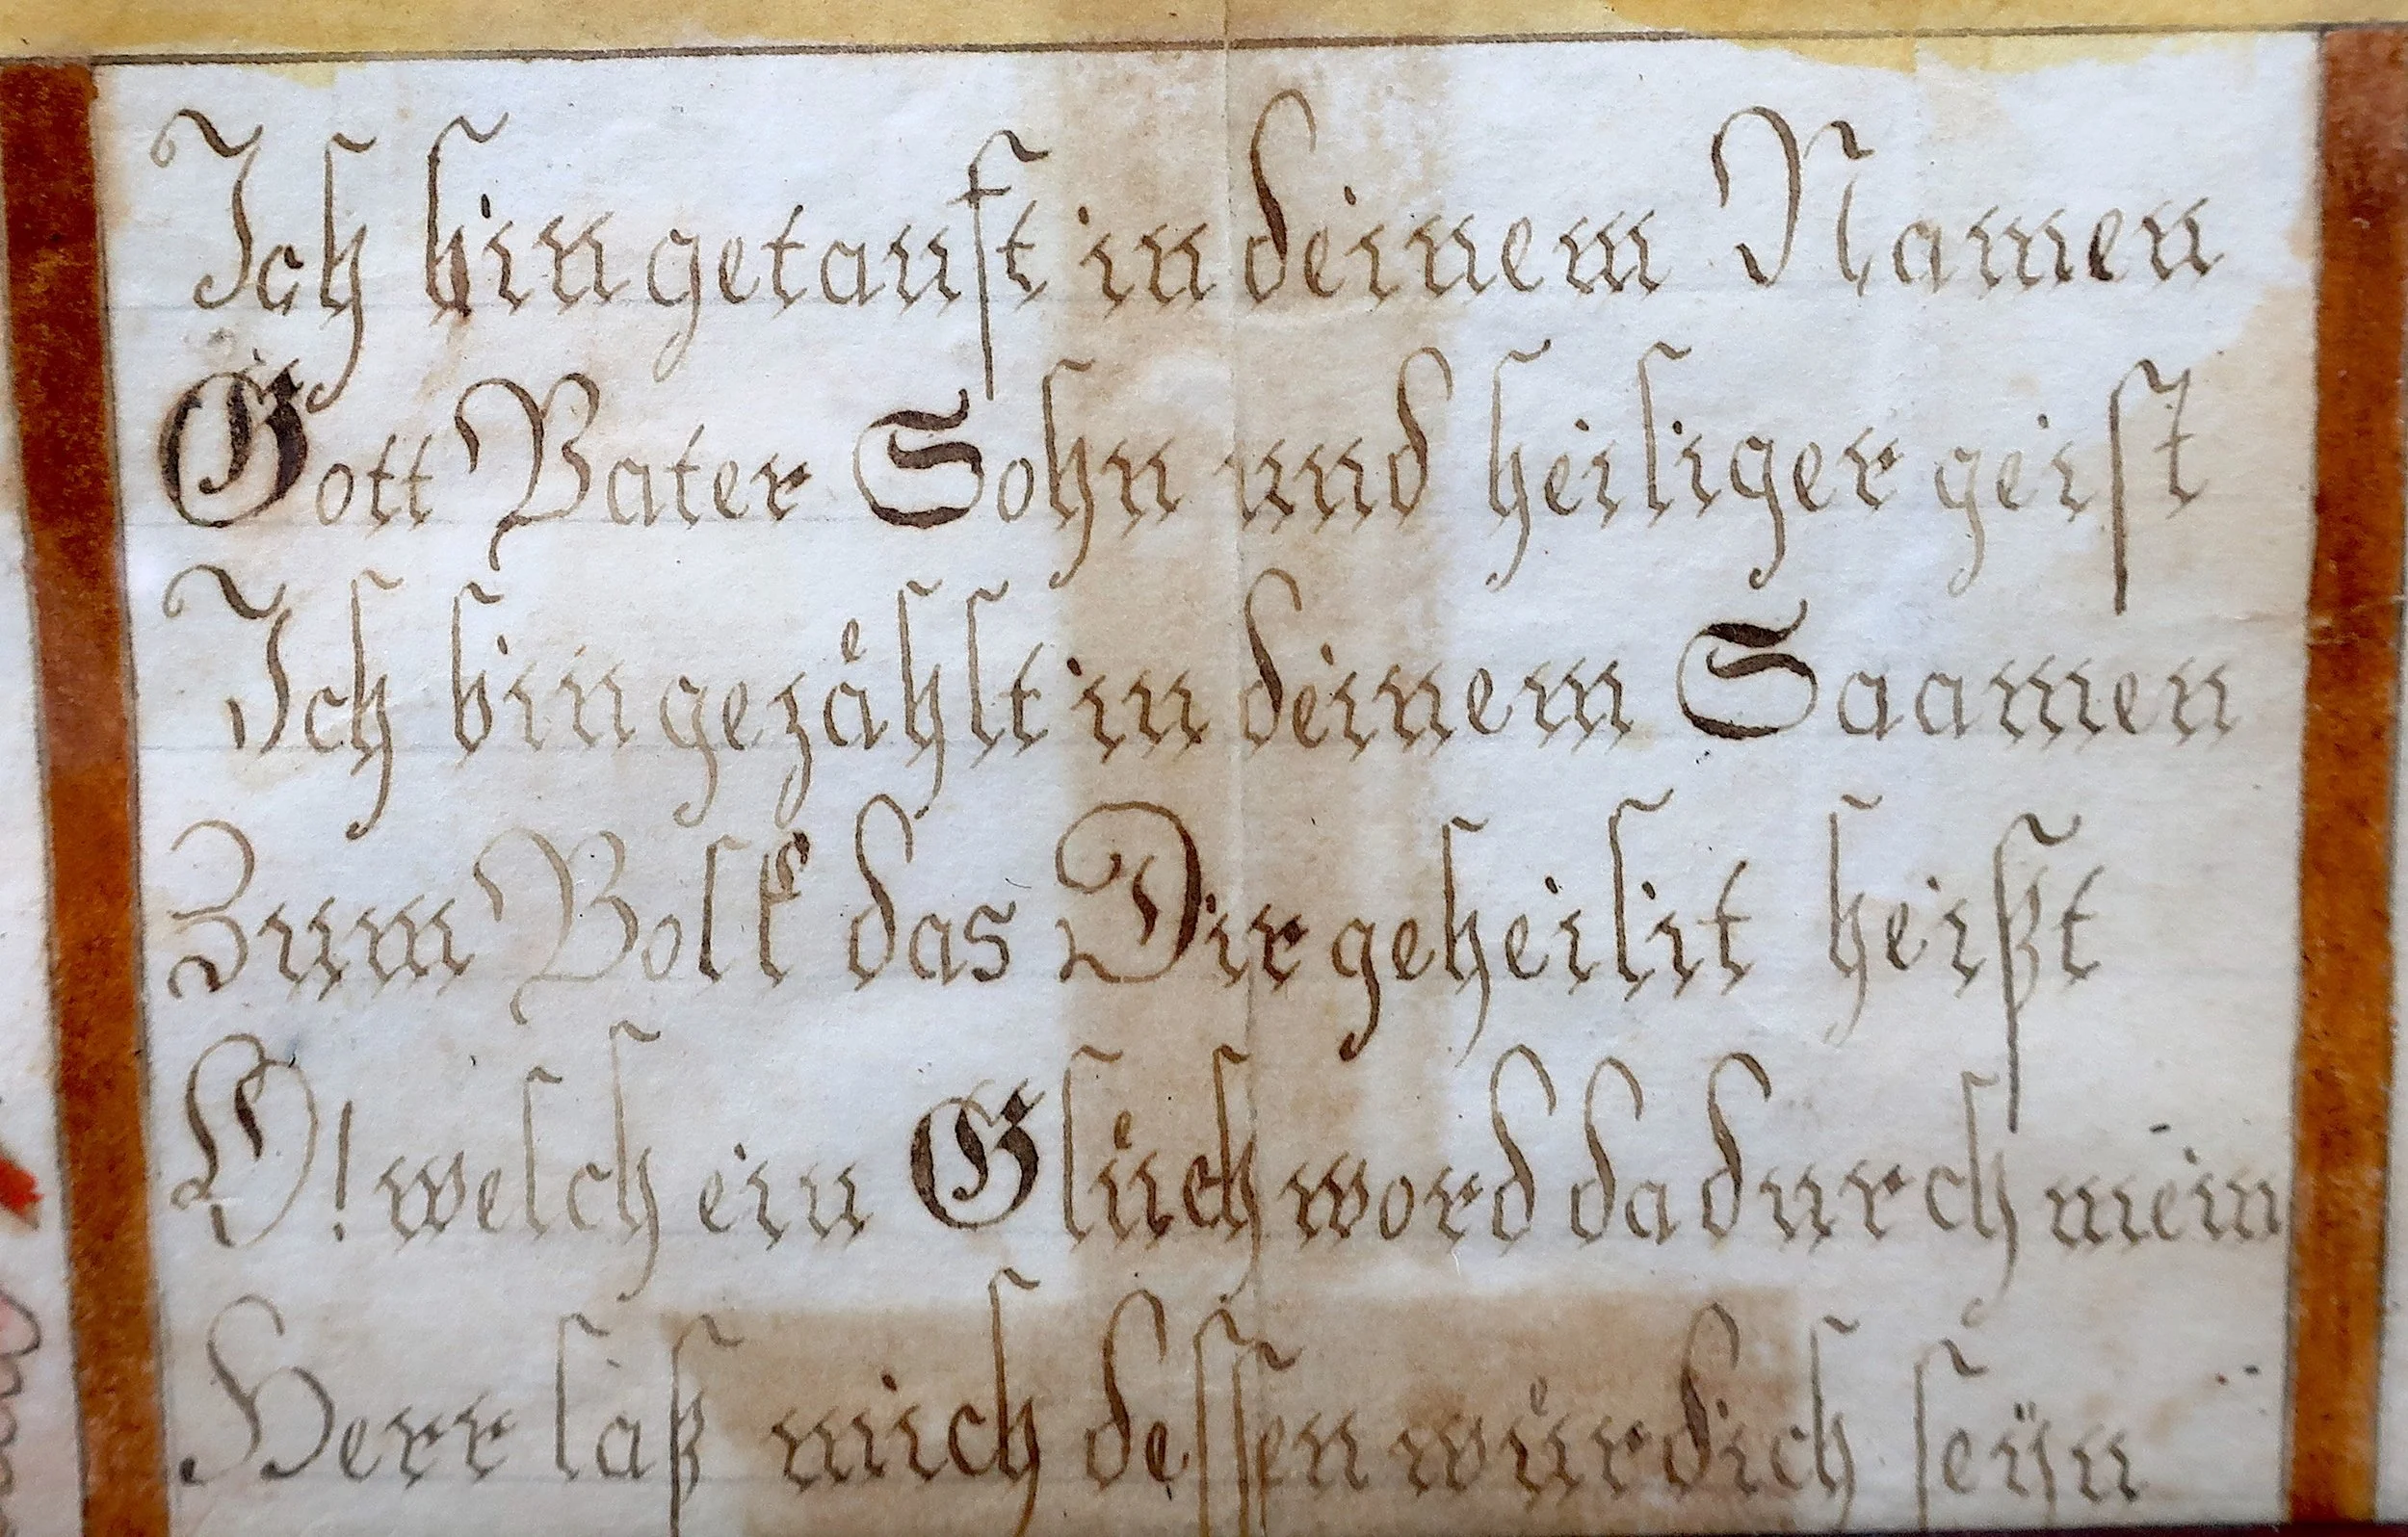 Ich bin getauft in deinem Namen
Gott Vater Sohn und heiliger geist
Ich bin gezåhlt in deinem Saamen
Zum Volk das Dir geheilit heißt
O! welch ein Glůch word dadurch mein
Herr laß mich dessen wůrdich seÿn